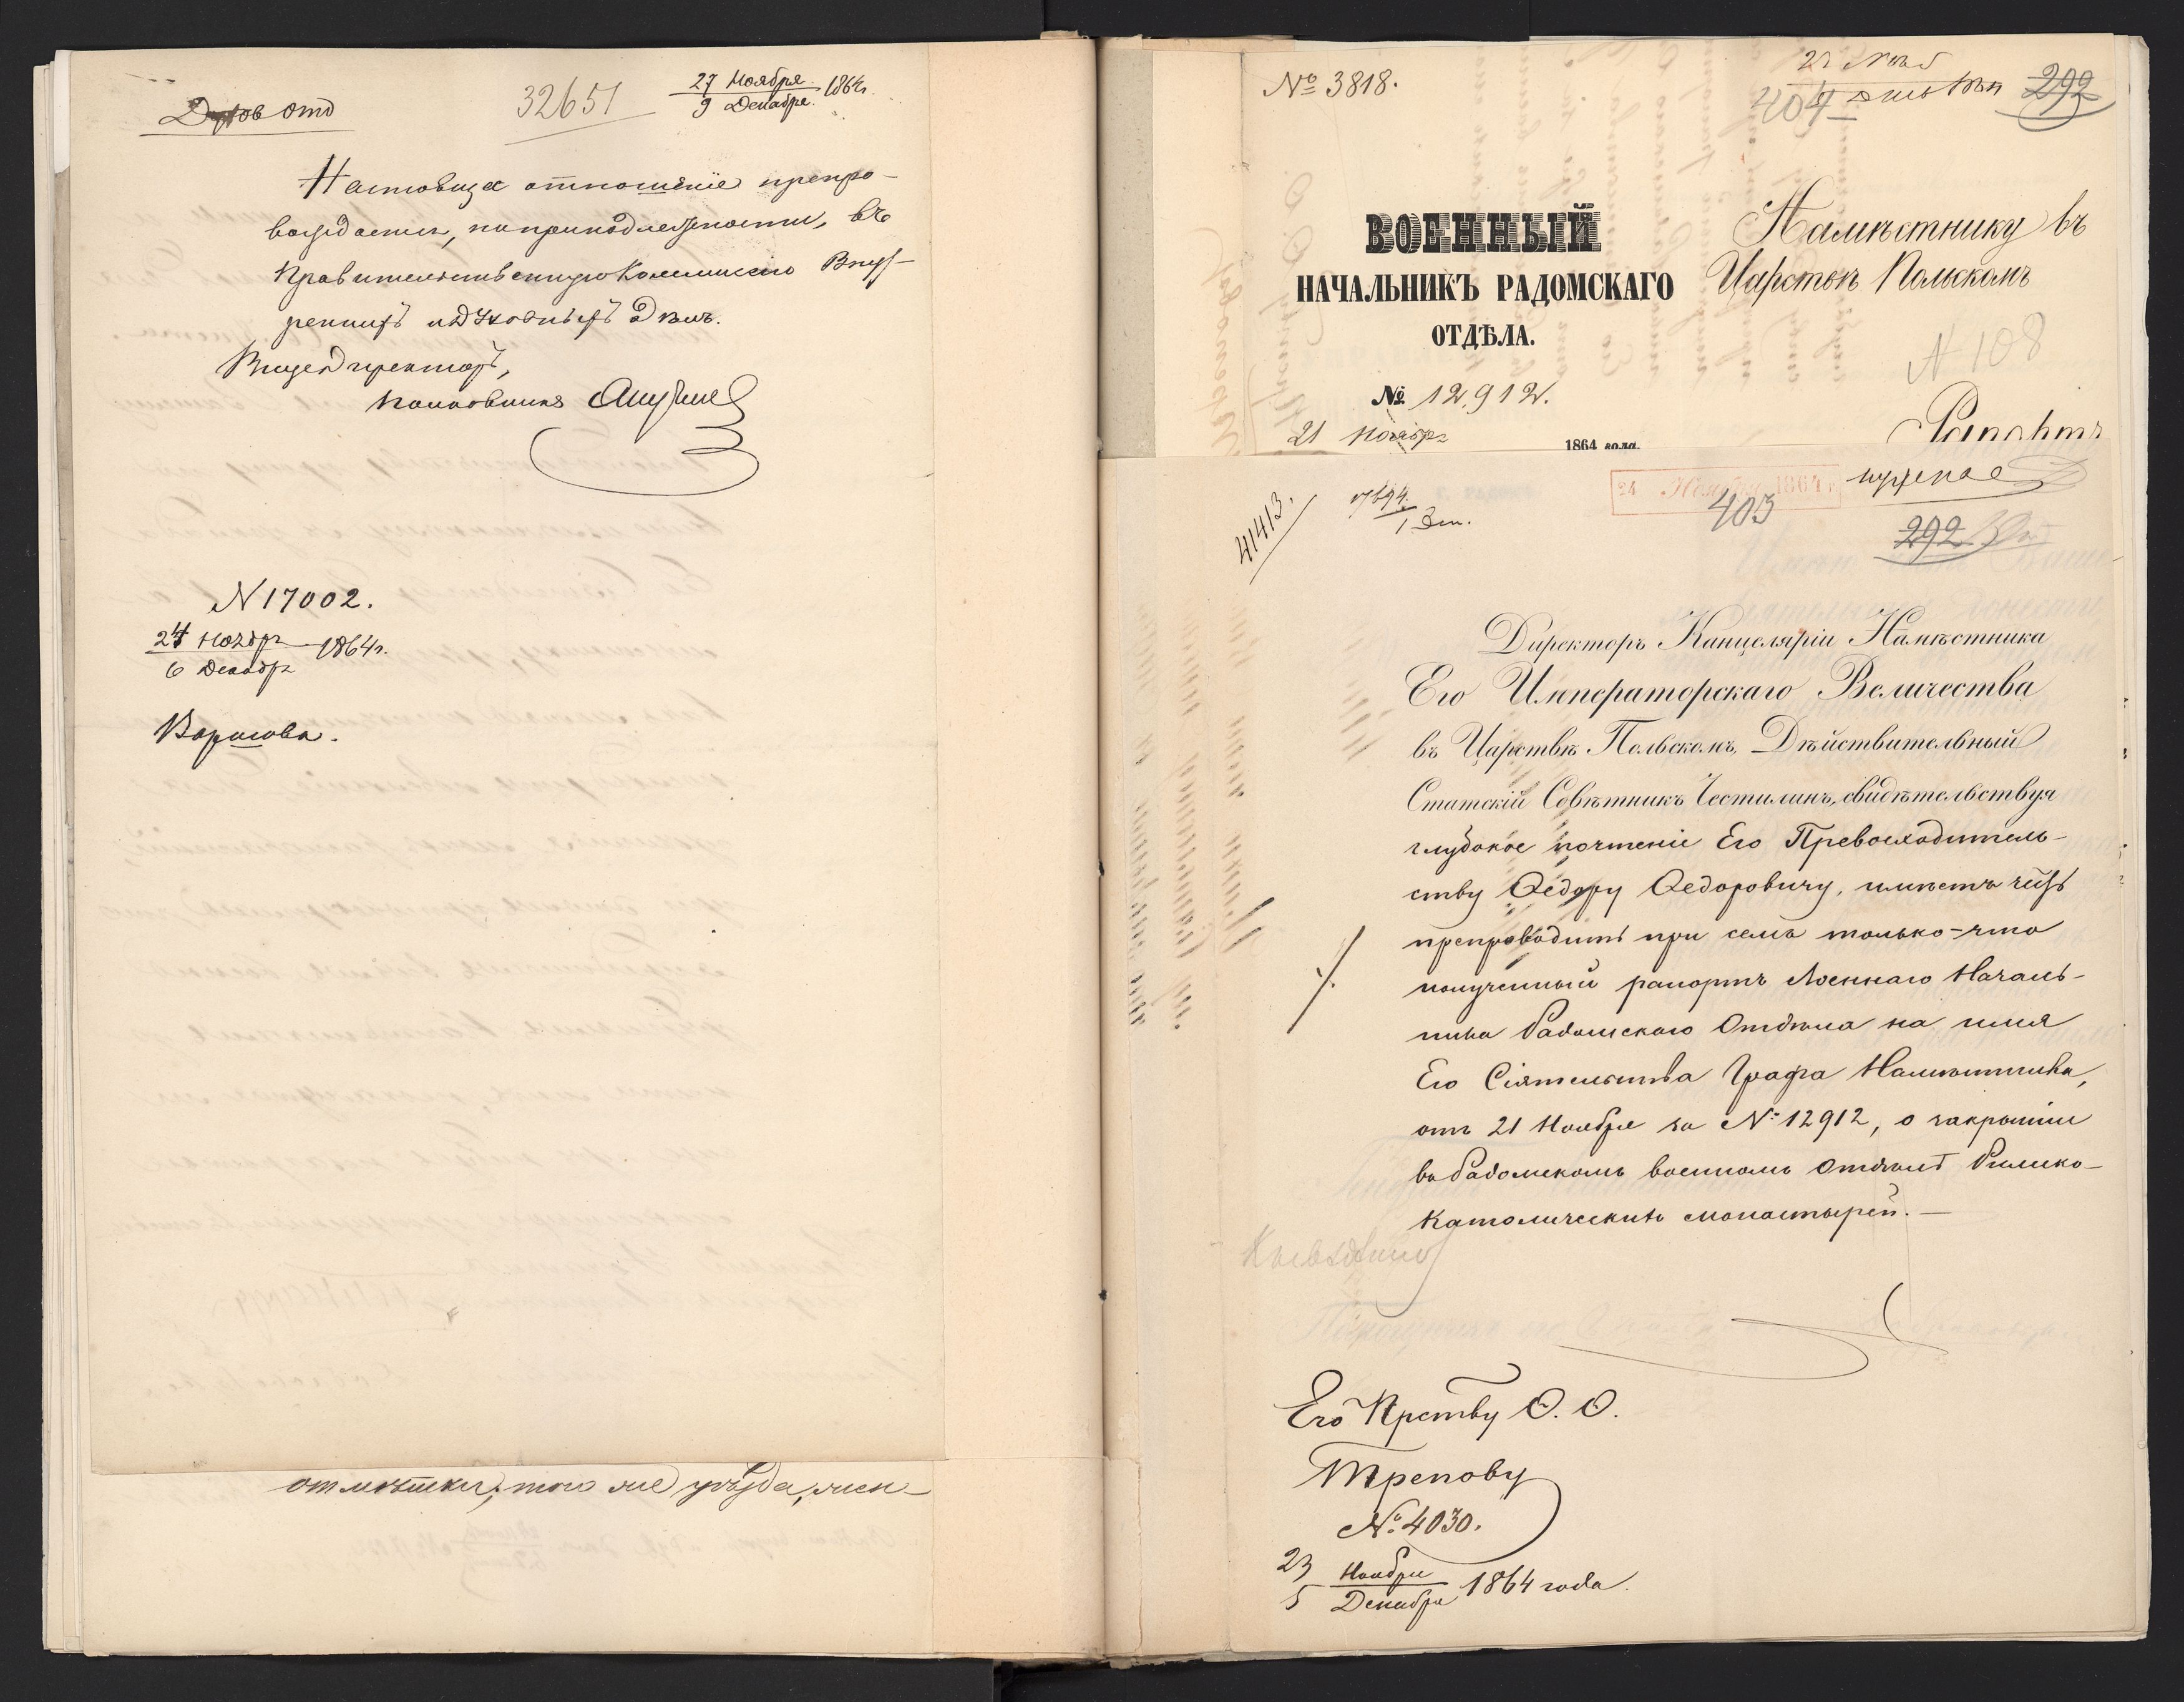 отд
32651
27 Ноября
9 Декабря 1864 г.
Настоящее отношеніе препро-
вождается, по принадлежности, въ
Правительственную Коммиссію Внут-
реннихъ и Духовныхъ Дѣлъ.
Вице Директоръ,
Полковникъ
N 17002.
24 Ноябр
6 Декабр 1864 г.
Варшава.
отмѣтки, того же уѣзда,
№ 3818.
404
292
ВОЕННЫЙ
НАЧАЛЬНИКЪ РАДОМСКАГО
ОТДѢЛА.
№ 12,912.
21 Ноябр 1864 года.
Намѣстнику въ
Царствѣ Польскомъ
N 108
Рапортъ
41413.
24 Ноября 1864
403
292
Директоръ Канцеляріи Намѣстника
Его Императорскаго Величества
въ Царствѣ Польскомъ, Дѣйствительный
Статскій Совѣтникъ Честилинъ, свидѣтельствуя
глубокое почтеніе Его Превосходитель-
ству Ѳедору Ѳедоровичу, имѣетъ честь
препроводить при семъ только-что
полученный рапортъ Военнаго Началь-
ника Радомскаго Отдѣла на имя
Его Сіятельства Графа Намѣстника,
отъ 21 Ноября за № 12912, о закрытіи
въ Радомскомъ военномъ Отдѣлѣ Римско-
Католическихъ монастырей.—
Его Прству Ѳ. Ѳ.
Трепову
№ 4030.
23 Ноября
5 Декабря 1864 года.